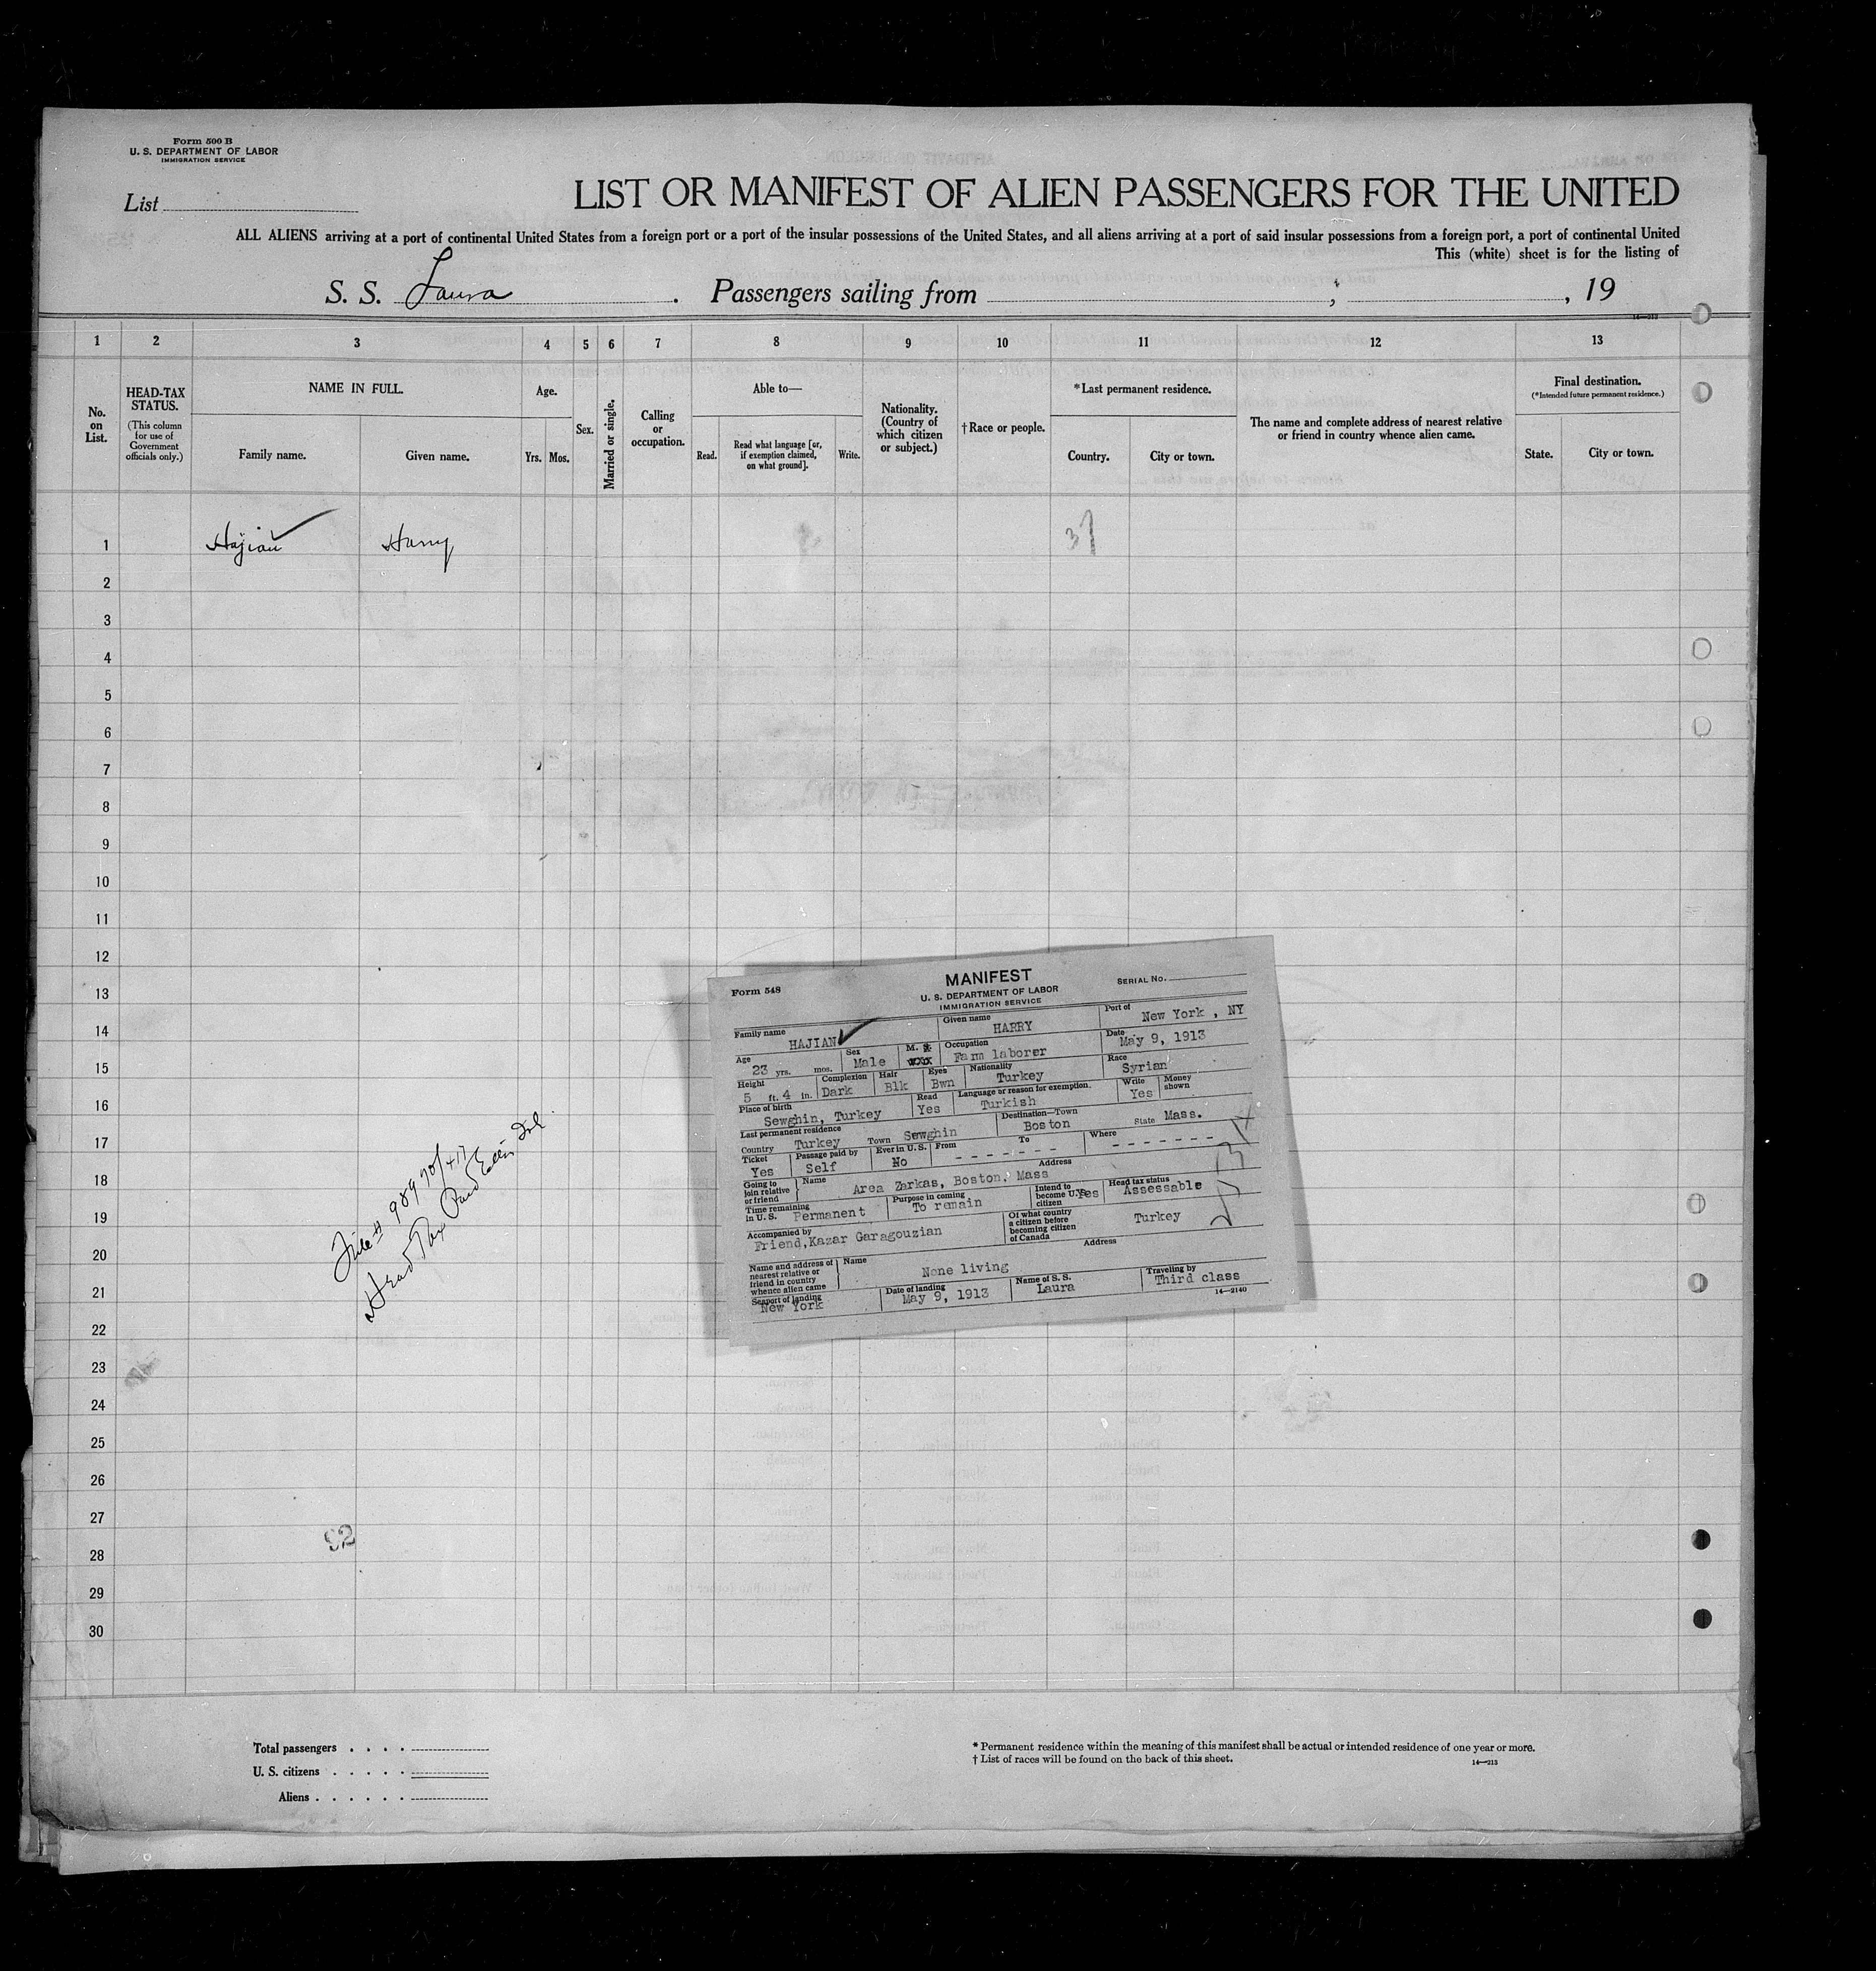 Form 500 B
U. S. DEPARTMENT OF LABOR
IMMIGRATION SERVICE
List
LIST OR MANIFEST OF ALIEN PASSENGERS FOR THE UNITED
ALL ALIENS arriving at a port of continental United States from a foreign port or a port of the insular possessions of the United States, and all aliens arriving at a port of said insular possessions from a foreign port, a port of continental United
This (white) sheet is for the listing of
S. S. Laura . Passengers sailing from , , 19
14—213
1 2 3 4 5 6 7 8 9 10 11 12 13
No. on List.
HEAD-TAX STATUS.
(This column for use of Government officials only.)
NAME IN FULL.
Family name.
Given name.
Age.
Yrs. Mos.
Sex.
Married or single.
Calling or occupation.
Able to—
Read.
Read what language [or, if exemption claimed, on what ground].
Write.
Nationality. (Country of which citizen or subject.)
† Race or people.
*Last permanent residence.
Country.
City or town.
The name and complete address of nearest relative or friend in country whence alien came.
Final destination.
(*Intended future permanent residence.)
State.
City or town.
1 Hajian Harry 37
2
3
4
5
6
7
8
9
10
11
12
13
14
15
16
17
18
19
20
21
22
23
24
25
26
27
28
29
30
MANIFEST
Form 548
U. S. DEPARTMENT OF LABOR
IMMIGRATION SERVICE
SERIAL No.
Family name HAJIAN
Given name HARRY
Port of New York , NY
Age 23 yrs. mos.
Sex Male
M.
Occupation Farm laborer
Date May 9, 1913
Height 5 ft. 4 in.
Complexion Dark
Hair Blk
Eyes Bwn
Nationality Turkey
Race Syrian
Place of birth Sewghin, Turkey
Read Yes
Language or reason for exemption. Turkish
Write Yes
Money shown
Last permanent residence
Country Turkey Town Sewghin
Destination—Town Boston State Mass.
Ticket Yes
Passage paid by Self
Ever in U. S. No
From To
Where
Going to join relative or friend
Name Address
Area Zarkas, Boston, Mass
Time remaining in U. S. Permanent
Purpose in coming To remain
Intend to become U. S. citizen Yes
Head tax status Assessable
Accompanied by Friend, Kazar Garagouzian
Of what country a citizen before becoming citizen of Canada Turkey
Name and address of nearest relative or friend in country whence alien came
Name Address
None living
Seaport of landing New York
Date of landing May 9, 1913
Name of S. S. Laura
Traveling by Third class
14—2140
File # 98990/417
Head Tax Paid Ellis Isl.
92
Total passengers
U. S. citizens
Aliens
* Permanent residence within the meaning of this manifest shall be actual or intended residence of one year or more.
† List of races will be found on the back of this sheet.
14—213